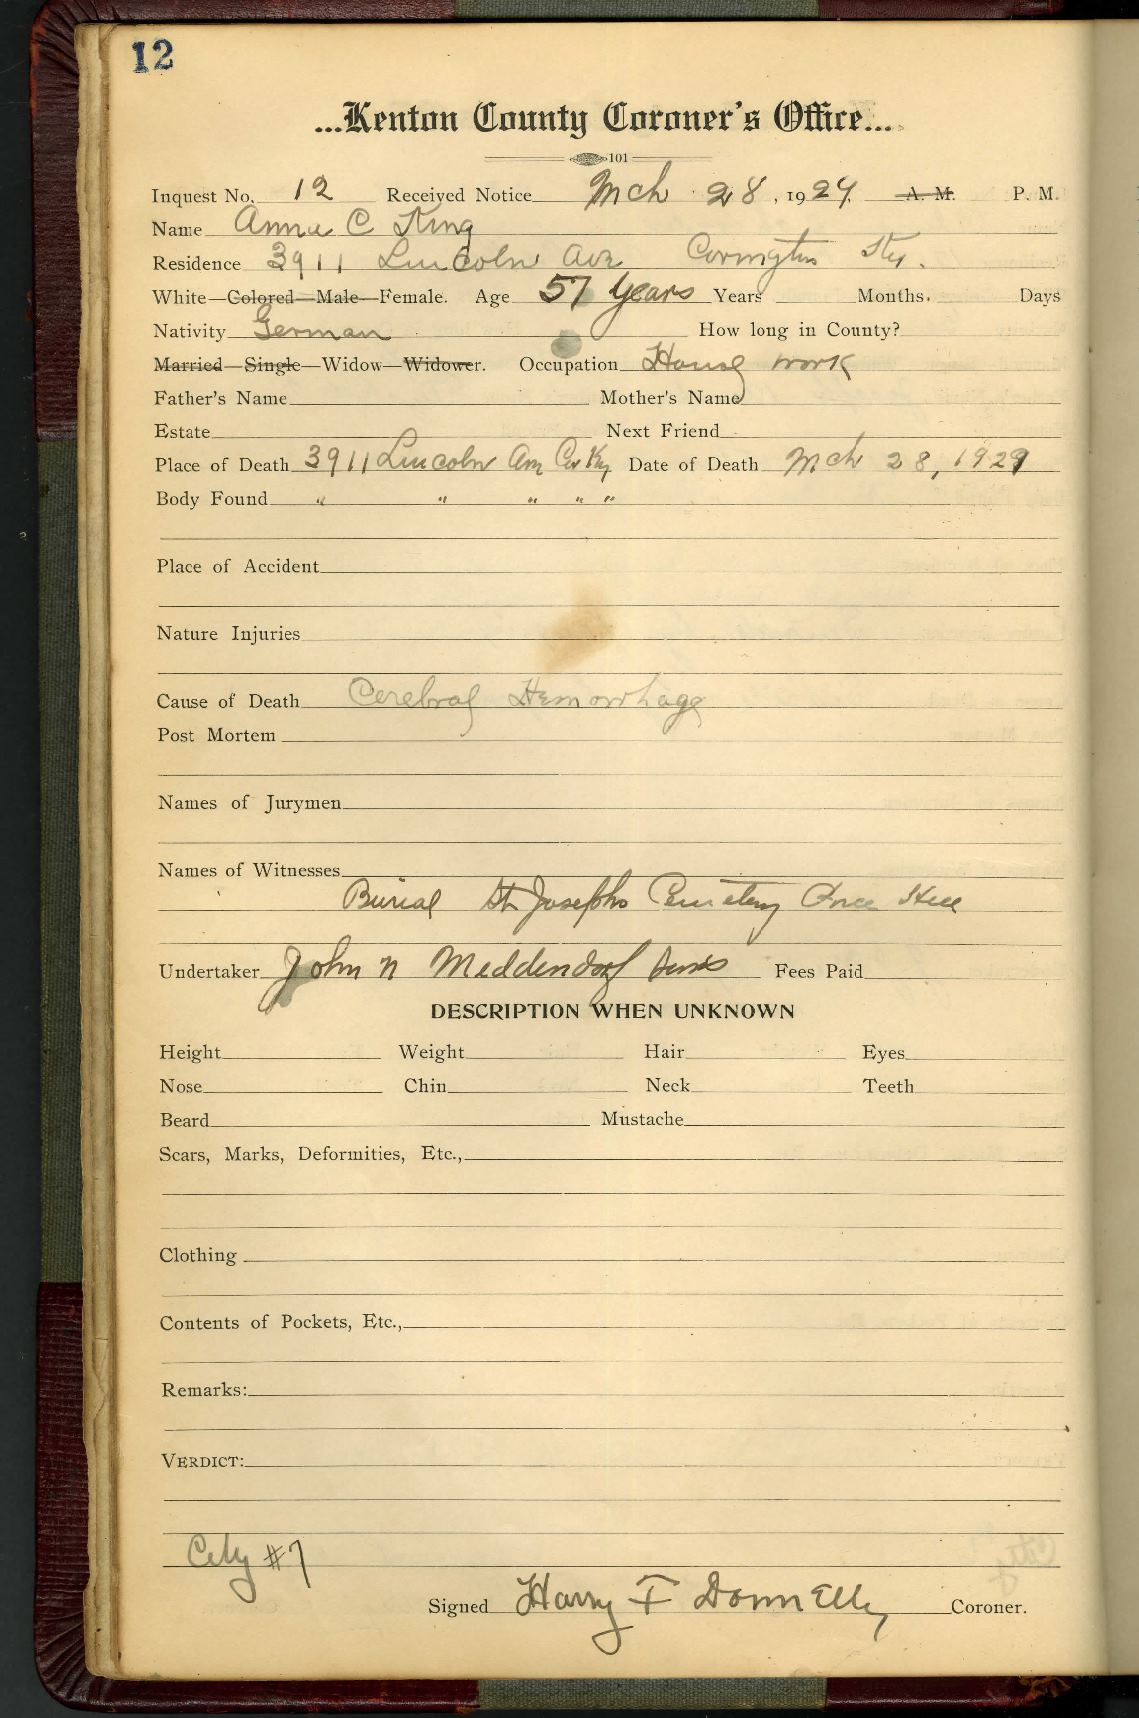 12
...Kenton County Coroner's Office...
101
Inquest No. 12 Received Notice Mch 28, 1929. A. M. P. M.
Name Anna C King
Residence 3911 Lincoln Ave Covington Ky.
White—Colored—Male—Female. Age 57 Years Years Months. Days
Nativity German How long in County?
Married—Single—Widow—Widower. Occupation House work
Father's Name Mother's Name
Estate Next Friend
Place of Death 3911 Lincoln Ave Cov Ky. Date of Death Mch 28, 1929
Body Found " " " " "
Place of Accident
Nature Injuries
Cause of Death Cerebral Hemorrhage
Post Mortem
Names of Jurymen
Names of Witnesses
Burial St Josephs Cemetery
Undertaker John N Meddendorf Sons Fees Paid
DESCRIPTION WHEN UNKNOWN
Height Weight Hair Eyes
Nose Chin Neck Teeth
Beard Mustache
Scars, Marks, Deformities, Etc.,
Clothing
Contents of Pockets, Etc.,
Remarks:
VERDICT:
City #7
Signed Harry F Donnelly Coroner.